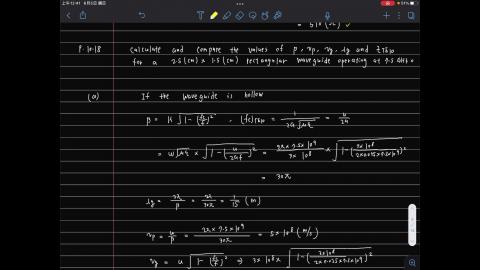 P.10.18 Calculate and compare the values of β, vp, vg, λg and Z TE10
for a 2.5 (cm) × 1.5 (cm) rectangular waveguide operating at 7.5 GHz
(a) If the waveguide is hollow
β = k √1-(fc/f)² , (fc)TE10 = 1/2a√με = u/2a
= ω√με × √1-(u/2af)² = 2π×7.5×10⁹/3×10⁸ × √1-(3×10⁸/2×0.025×7.5×10⁹)²
= 30π
λg = 2π/β = 2π/30π = 1/15 (m)
vp = ω/β = 2π×7.5×10⁹/30π = 5×10⁸ (m/s)
vg = u √1-(fc/f)² ⇒ 3×10⁸ × √1-(3×10⁸/2×0.025×7.5×10⁹)²